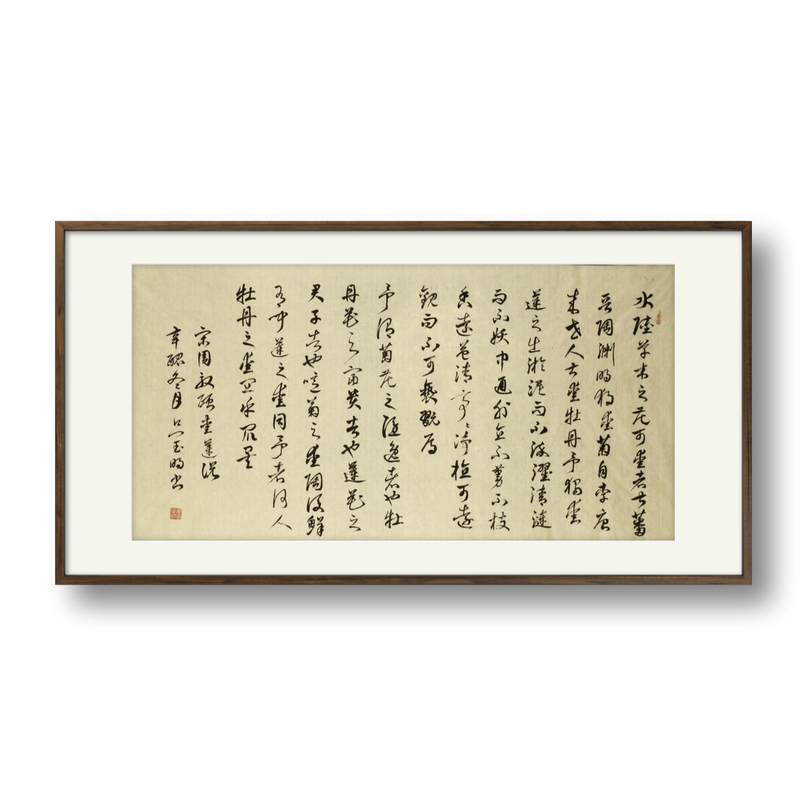 水陸草木之花可愛者甚蕃
晉陶淵明獨愛菊自李唐
来世人甚愛牡丹予獨愛
蓮之出淤泥而不染濯清漣
而不妖中通外直不蔓不枝
香遠益清亭亭淨植可遠
觀而不可褻翫焉
予謂菊花之隱逸者也牡
丹花之富貴者也蓮花之
君子者也噫菊之愛陶後鮮
有聞蓮之愛同予者何人
牡丹之愛宜乎眾矣
宋周敦頤愛蓮說
辛酉冬月 玉明書